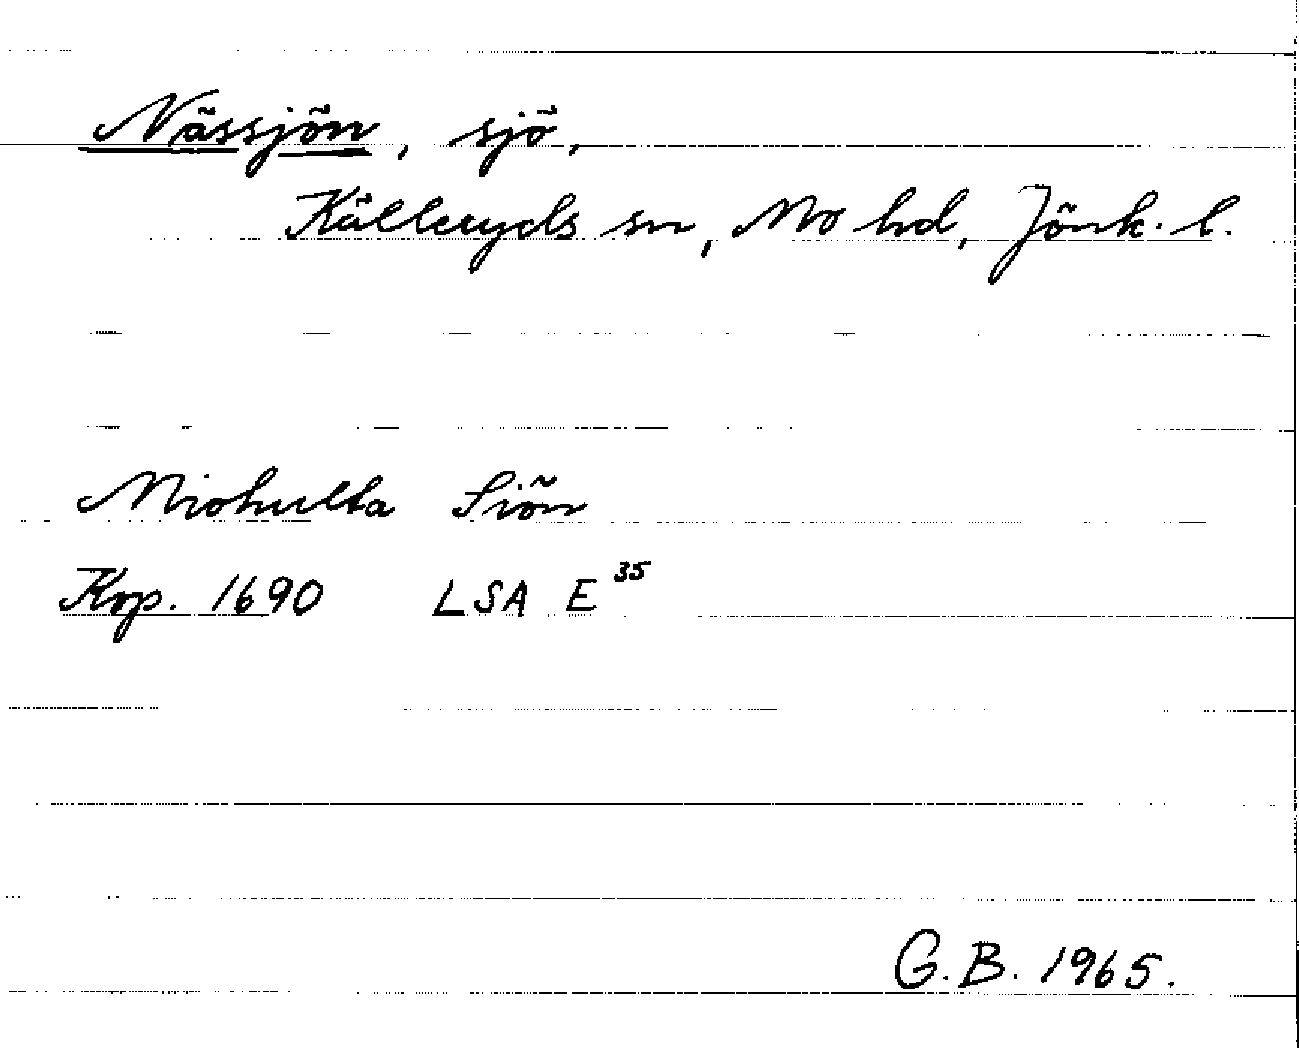 Nässjön, sjö,
Källeryds sn, Mo hd, Jönk. l.
Miohulta Siön
Kop. 1690 LSA E 35
G.B. 1965.